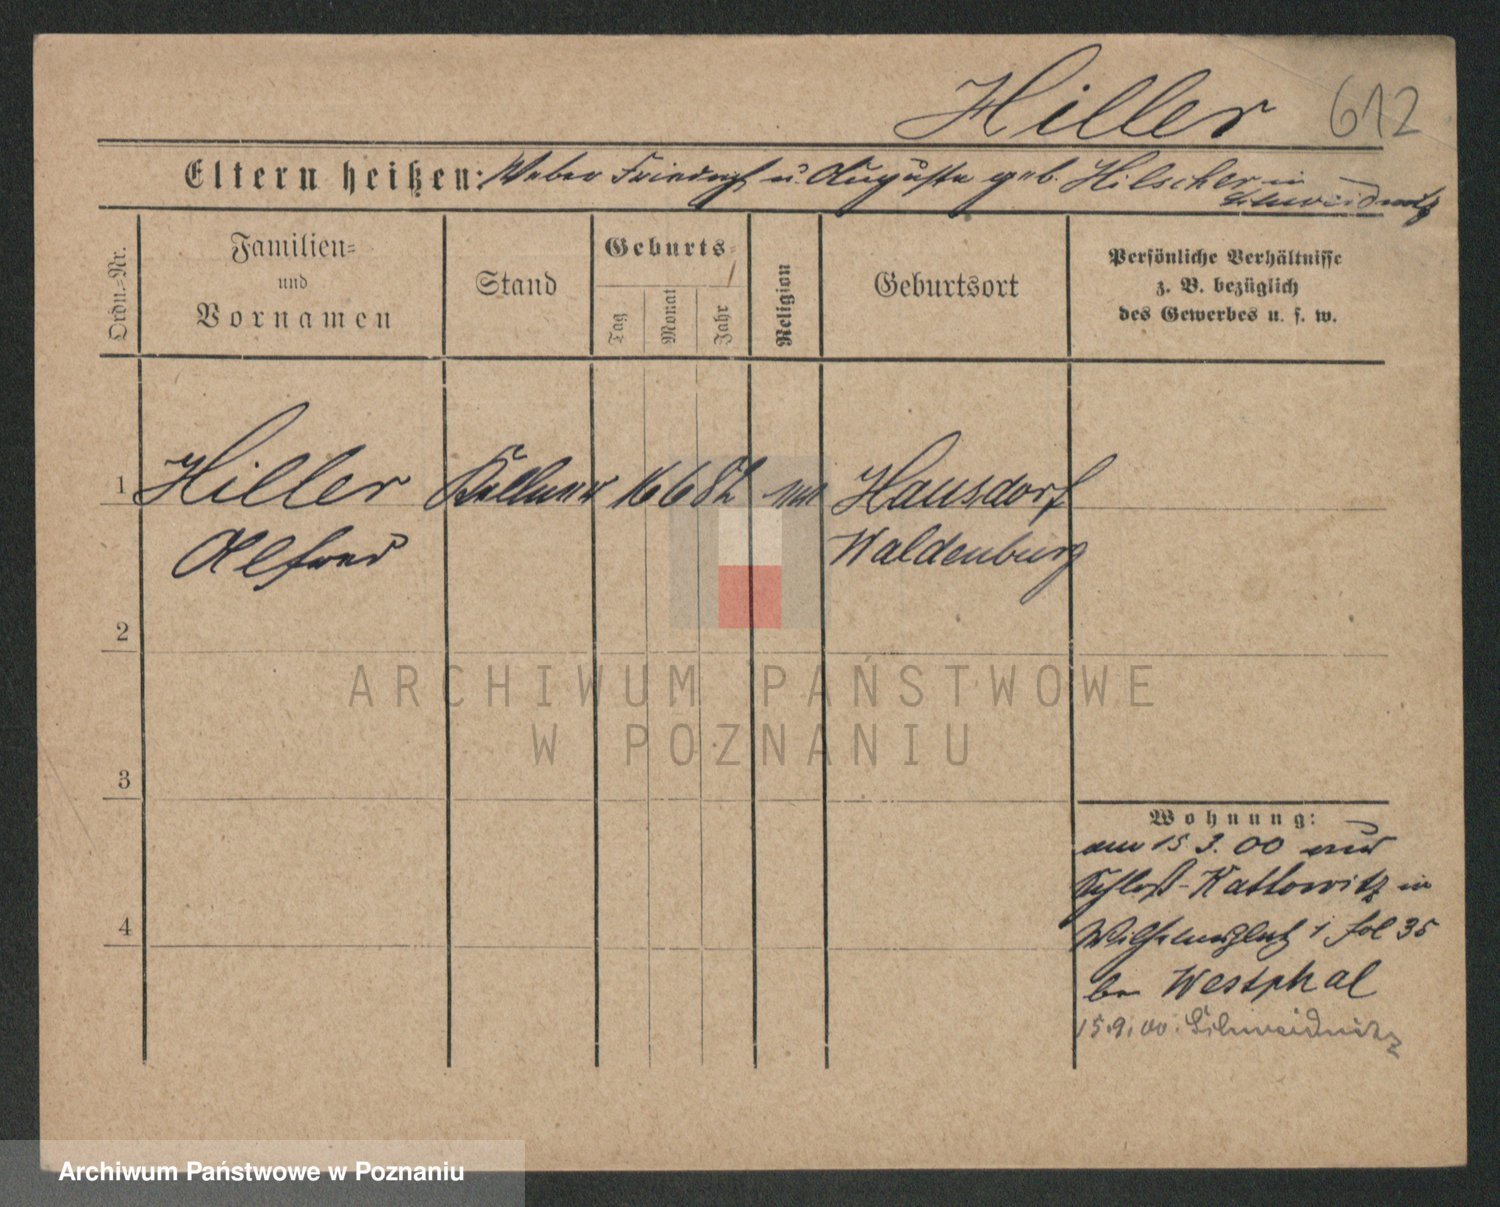 Hiller 612
Eltern heißen: Weber Friedrich u. Auguste geb. Hilscher in
Schweidnitz
Ordn.-Nr.
Familien-
und
Vornamen
Stand
Geburts-
Tag
Monat
Jahr
Religion
Geburtsort
Persönliche Verhältnisse
z. B. bezüglich
des Gewerbes u. s. w.
1 Hiller Kellner 16 6 82 Hausdorf
Alfred Waldenburg
2
3
4
Wohnung:
am 15 3. 00 aus
Schloß-Kattowitz in
Wilhelmsplatz 1 fol 35
bei Westphal
15.9.00. Schweidnitz
ARCHIWUM PAŃSTWOWE
W POZNANIU
Archiwum Państwowe w Poznaniu